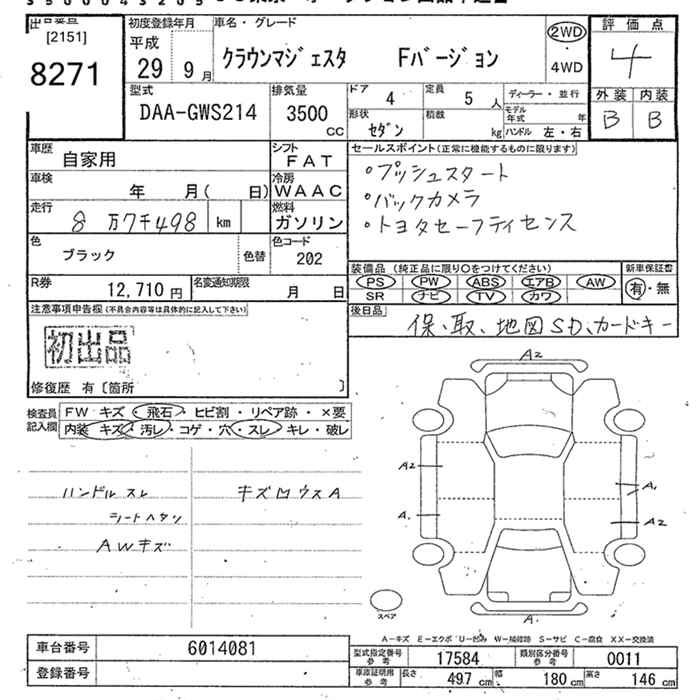 [2151]
8271
初度登録年月
平成
29 9月
車名・グレード
クラウンマジェスタ Fバージョン
2WD
・
4WD
評価点
4
外装 内装
B B
型式
DAA-GWS214
排気量
3500
CC
ドア
4
定員
5 人
形状
セダン
積載
kg
ディーラー・並行
モデル年式 年
ハンドル 左・右
車歴
自家用
シフト
FAT
車検
年 月( 日)
冷房
WAAC
走行
8万7千498 km
燃料
ガソリン
色
ブラック
色替
色コード
202
R券
12,710円
名変通知期限
月 日
セールスポイント(正常に機能するものに限ります)
・プッシュスタート
・バックカメラ
・トヨタセーフティセンス
装備品 (純正品に限り○をつけてください)
PS PW ABS エアB AW
SR ナビ TV カワ
新車保証書
有・無
後日品
保、取、地図SD、カードキー
注意事項申告欄(不具合内容等は具体的に記入して下さい)
初出品
修復歴 有〔箇所 〕
検査員記入欄
FW キズ・飛石・ヒビ割・リペア跡・×要
内装 キズ・汚レ・コゲ・穴・スレ・キレ・破レ
ハンドルスレ
シートヘタリ
AWキズ
キズ凹ウスA
A2
A2
A.
A.
A2
A.
スペア
A-キズ E-エクボ U-凹み W-補修跡 S-サビ C-腐食 XX-交換済
車台番号
6014081
登録番号
型式指定番号
参考
17584
類別区分番号
参考
0011
車庫証明用
参考
長さ 497 cm 幅 180 cm 高さ 146 cm